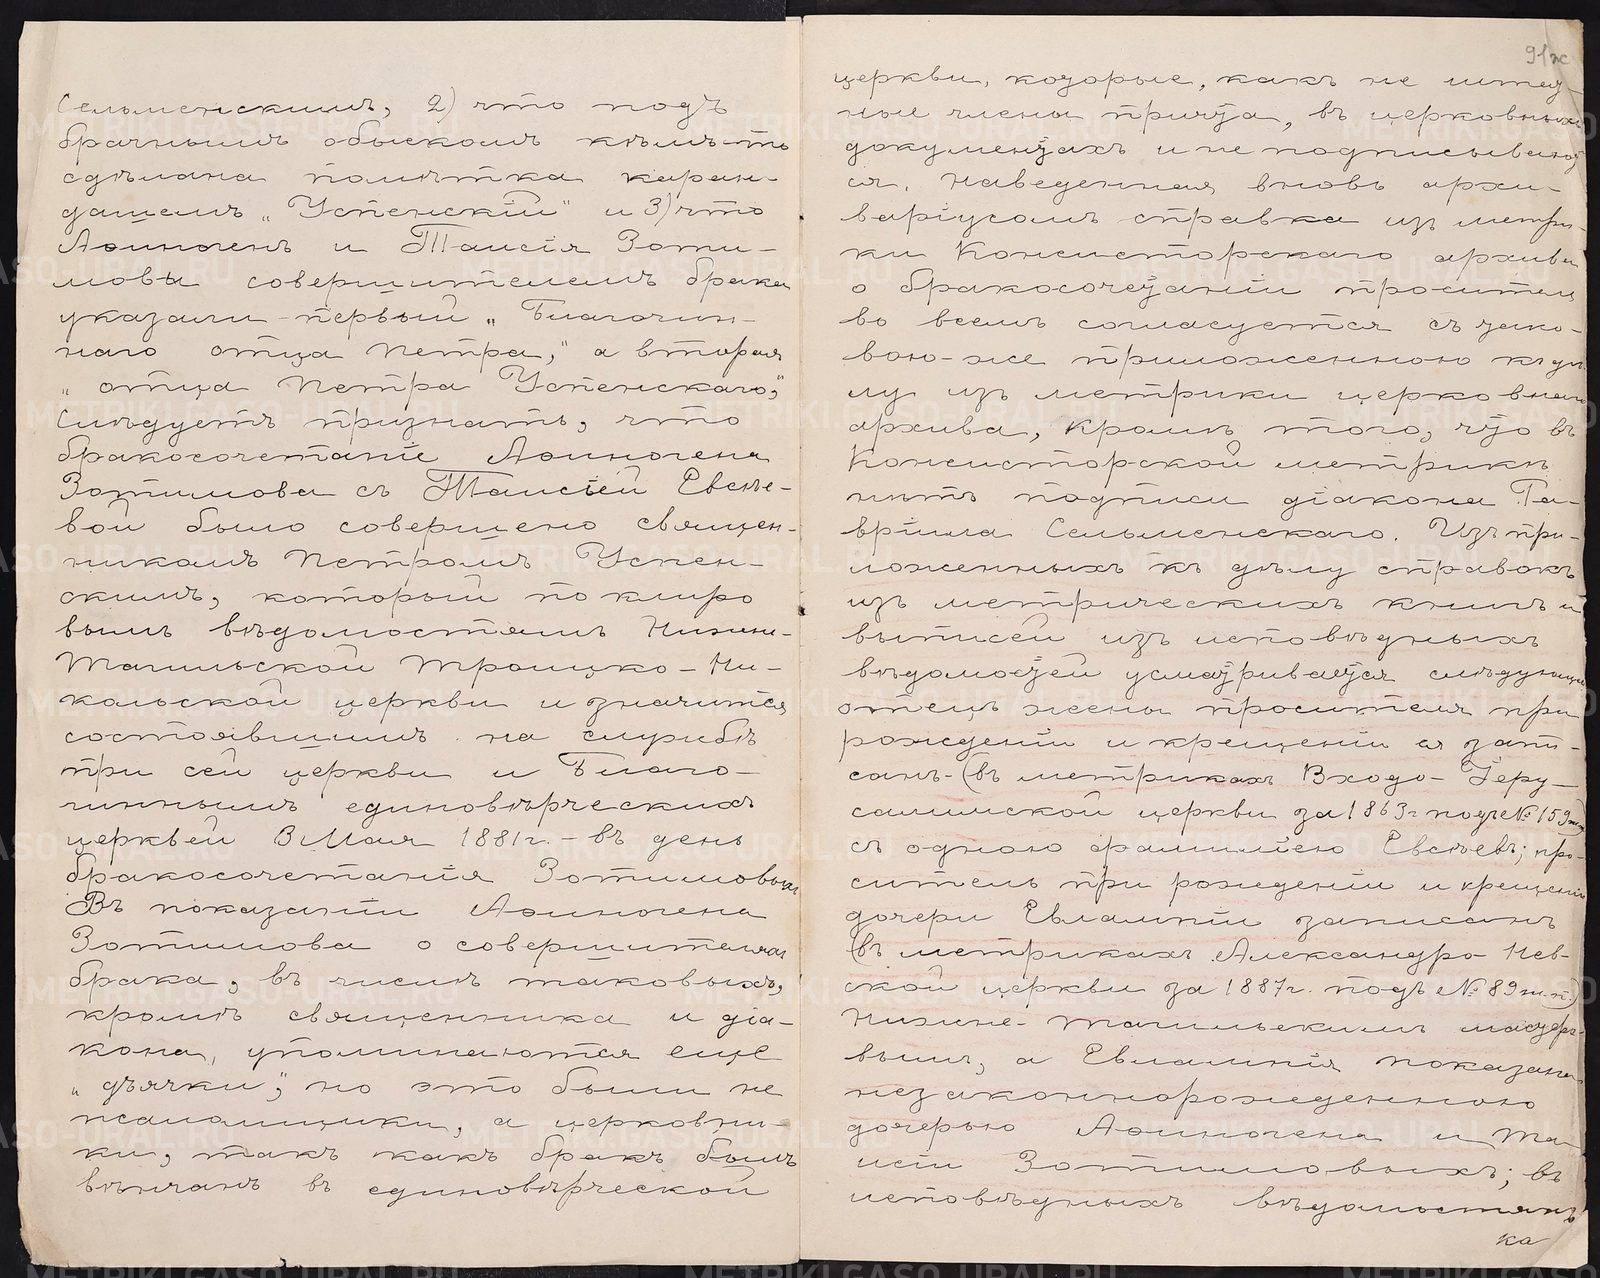 Сельменскимъ, 2) что подъ
брачнымъ обыскомъ кѣмъ-то
сдѣлана помѣтка каран-
дашемъ „Успенскій“ и 3) что
Аѳиногенъ и Таисія Зоти-
мовы совершителемъ брака
указали - первый „Благочин-
наго отца Петра,“ а вторая
„отца Петра Успенскаго,“
слѣдуетъ признать, что
бракосочетаніе Аѳиногена
Зотимова съ Таисіей Евсѣе-
вой было совершено священ-
никомъ Петромъ Успен-
скимъ, который по клиро
вымъ вѣдомостямъ Нижне-
Тагильской Троицко-Ни-
кольской церкви и значится
состоявшимъ на службѣ
при сей церкви и Благо-
чиннымъ единовѣрческихъ
церквей 3 Мая 1881 г. - въ день
бракосочетанія Зотимовыхъ
Въ показаніи Аѳиногена
Зотимова о совершителяхъ
брака, въ числѣ таковыхъ,
кромѣ священника и діа-
кона, упоминаются еще
„дьячки“, но это были не
псаломщики, а церковни-
ки, такъ какъ бракъ былъ
вѣнчанъ въ единовѣрческой
91ж
церкви, которые, какъ не штат-
ные члены причта, въ церковныхъ
документахъ и не подписывают
ся. Наведенная вновь архи-
варіусомъ справка изъ метри-
ки Консисторскаго архива
о бракосочетаніи просителя
во всемъ согласуется съ тако-
вою-же приложенною къ дѣ-
лу изъ метрики церковнаго
архива, кромѣ того, что въ
Консисторской метрикѣ
нѣтъ подписи діакона Га-
вріила Сельменскаго. Изъ при-
ложенныхъ къ дѣлу справокъ
изъ метрическихъ книгъ и
выписей изъ исповѣдныхъ
вѣдомостей усматривается слѣдующее
отецъ жены просителя при
рожденіи и крещеніи ея запи-
санъ - (въ метрикахъ Входо-Іеру-
салимской церкви за 1863 г подъ № 159
съ одною фамиліею Евсѣевъ; про-
ситель при рожденіи и крещеніи
дочери Евлампіи записанъ
(въ метрикахъ Александро-Нев-
ской церкви за 1887 г. подъ № 89 ж.п.)
Нижне-Тагильскимъ мастеро-
вымъ, а Евлампія показана
незаконнорожденною
дочерью Аѳиногена и Та-
исіи Зотимовыхъ; въ
исповѣдныхъ вѣдомостяхъ
ка